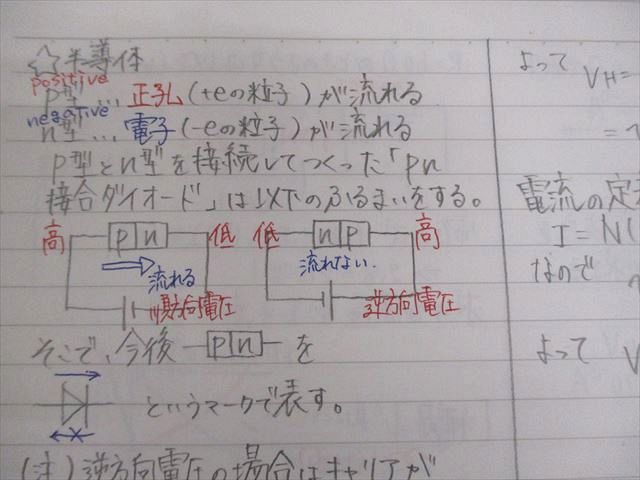 ☆半導体
positive
p型…正孔(+eの粒子)が流れる
negative
n型…電子(-eの粒子)が流れる
p型とn型を接続してつくった「pn
接合ダイオード」は以下のふるまいをする。
高 p n 低
流れる
順方向電圧
低 n p 高
流れない.
逆方向電圧
そこで、今後 p n を
というマークで表す。
(注)逆方向電圧の場合はキャリアが
よって
VH=
=
電流の定
I=N(
なので
よって V